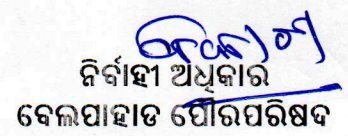 ନିର୍ବାହୀ ଅଧିକାରୀ
ବେଲପାହାଡ ପୌରପରିଷଦ